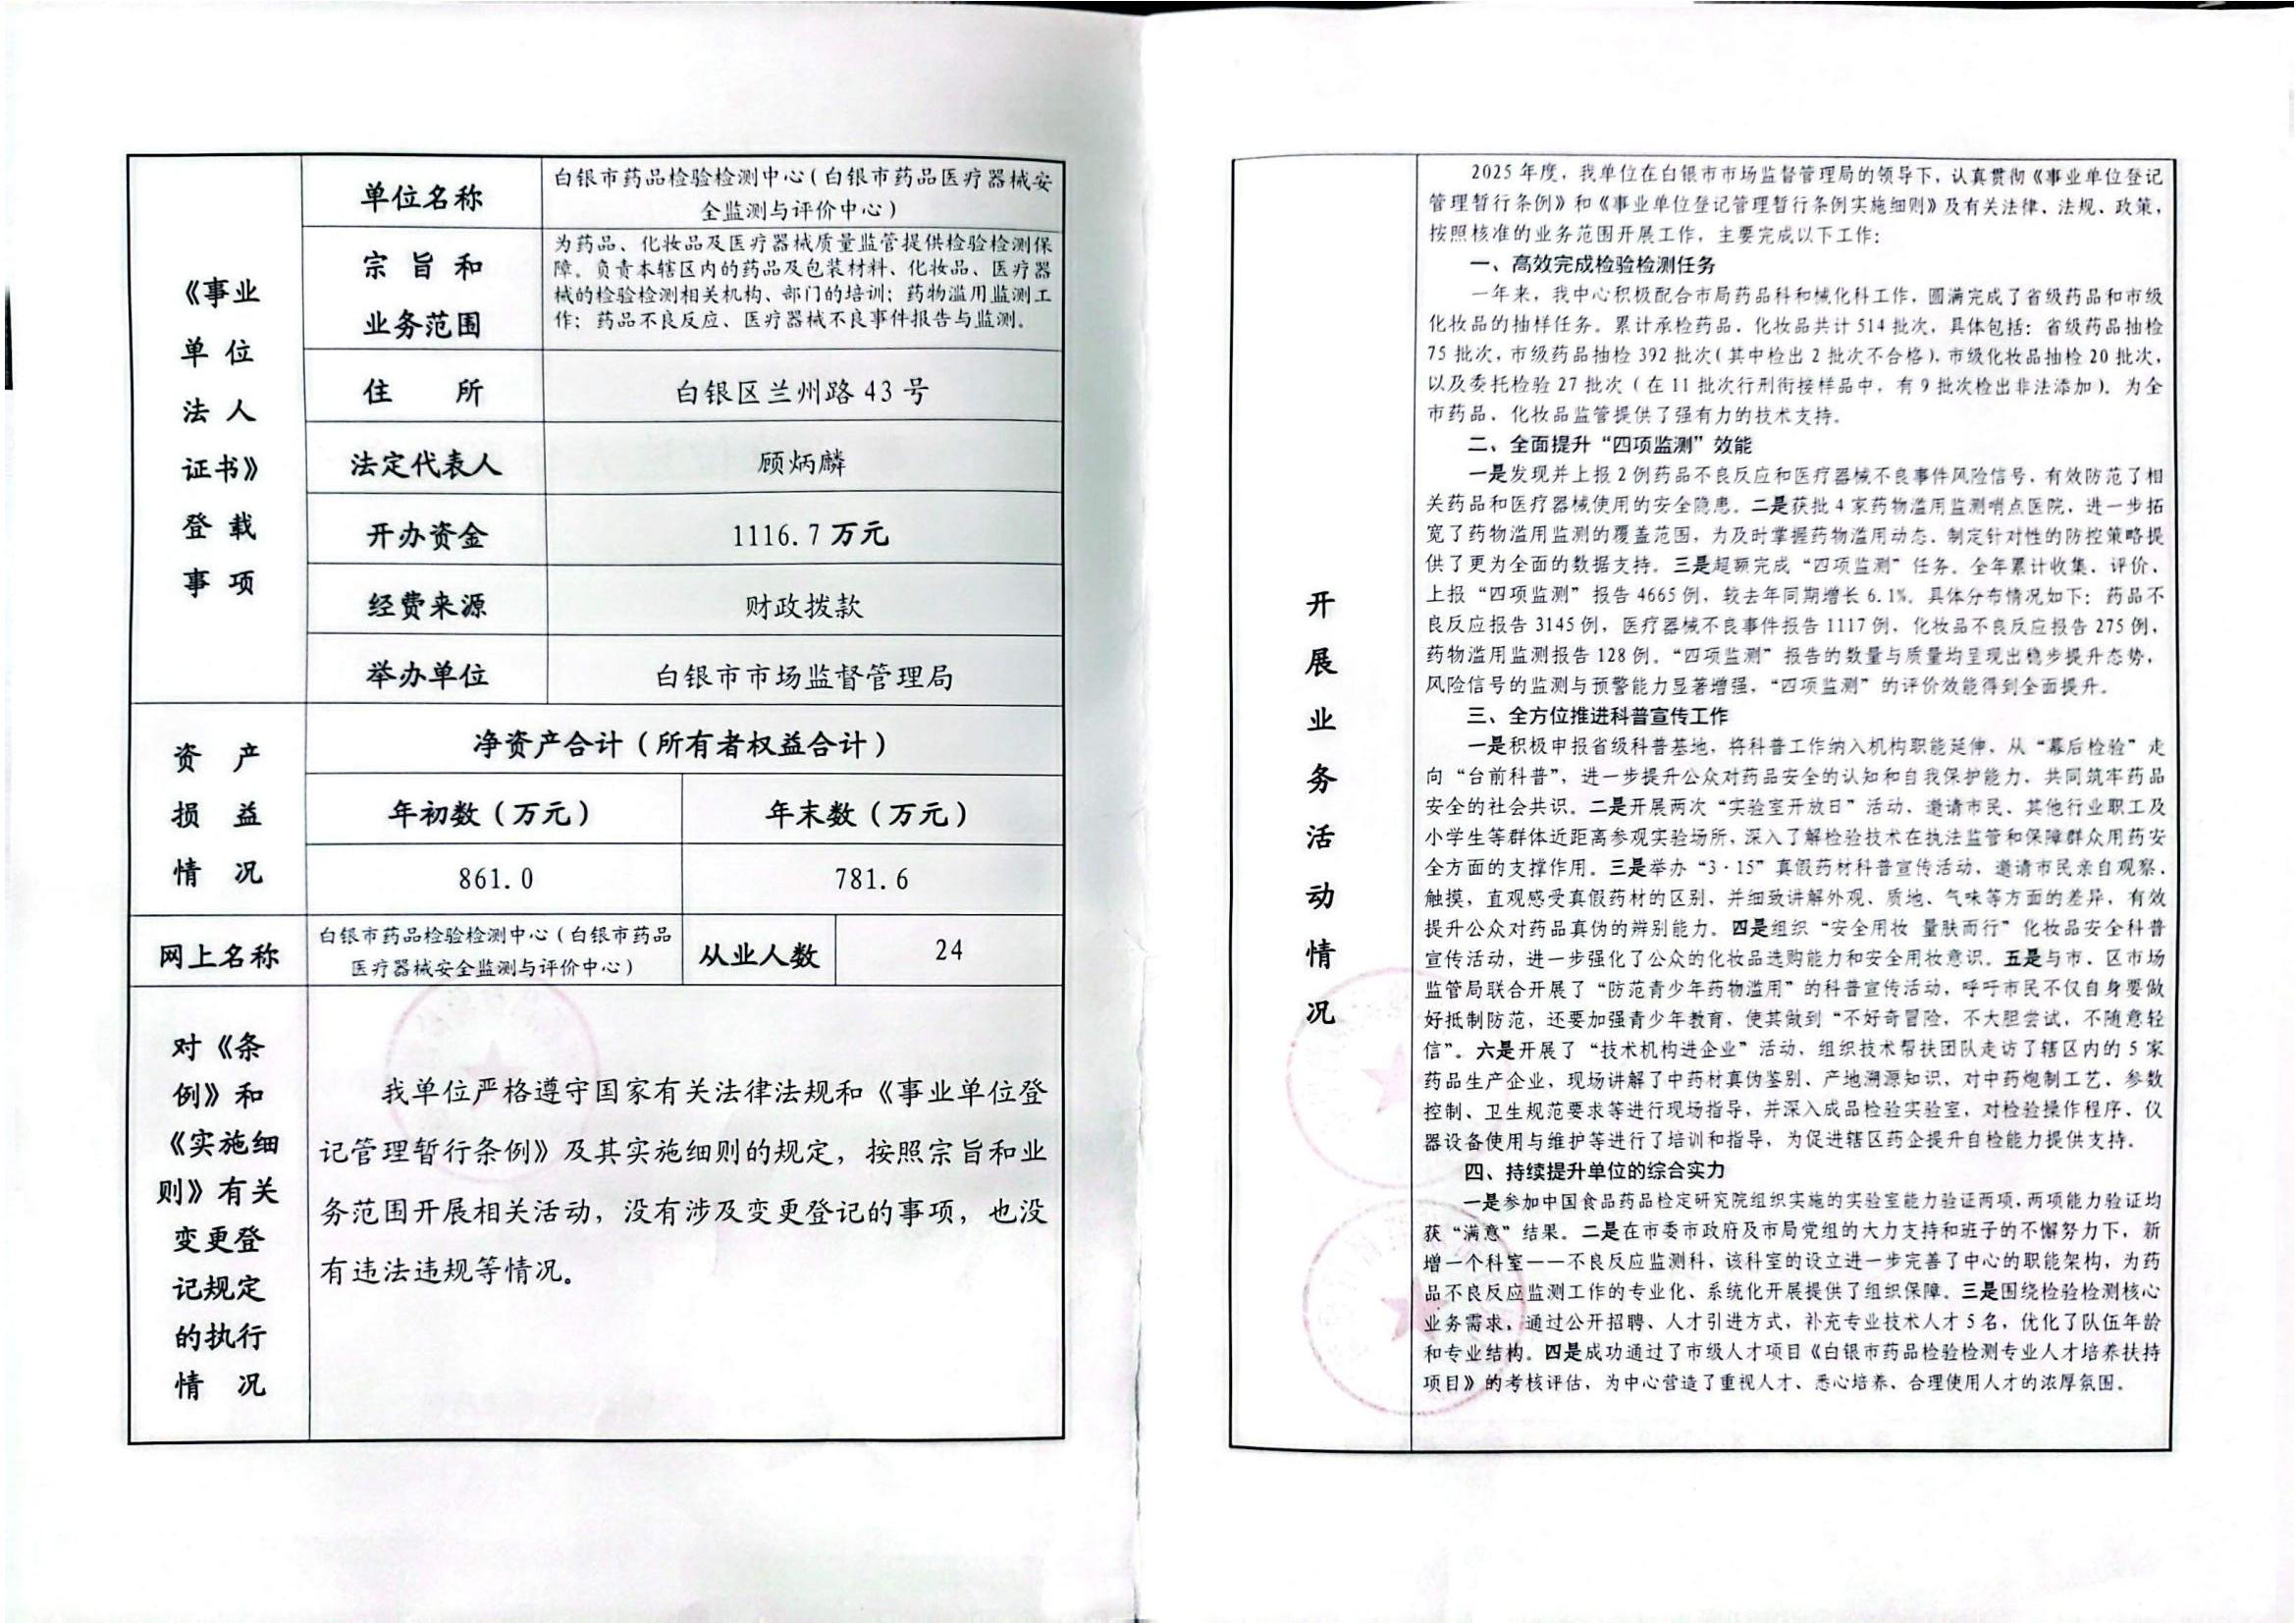 《事业
单位
法人
证书》
登载
事项
单位名称
白银市药品检验检测中心(白银市药品医疗器械安
全监测与评价中心)
宗旨和
业务范围
为药品、化妆品及医疗器械质量监管提供检验检测保
障。负责本辖区内的药品及包装材料、化妆品、医疗器
械的检验检测相关机构、部门的培训；药物滥用监测工
作；药品不良反应、医疗器械不良事件报告与监测。
住所
白银区兰州路43号
法定代表人
顾炳麟
开办资金
1116.7万元
经费来源
财政拨款
举办单位
白银市市场监督管理局
资产
损益
情况
净资产合计(所有者权益合计)
年初数(万元)
年末数(万元)
861.0
781.6
网上名称
白银市药品检验检测中心(白银市药品
医疗器械安全监测与评价中心)
从业人数
24
对《条
例》和
《实施细
则》有关
变更登
记规定
的执行
情况
我单位严格遵守国家有关法律法规和《事业单位登
记管理暂行条例》及其实施细则的规定，按照宗旨和业
务范围开展相关活动，没有涉及变更登记的事项，也没
有违法违规等情况。
开
展
业
务
活
动
情
况
2025年度，我单位在白银市市场监督管理局的领导下，认真贯彻《事业单位登记
管理暂行条例》和《事业单位登记管理暂行条例实施细则》及有关法律、法规、政策，
按照核准的业务范围开展工作，主要完成以下工作：
一、高效完成检验检测任务
一年来，我中心积极配合市局药品科和械化科工作，圆满完成了省级药品和市级
化妆品的抽样任务。累计承检药品、化妆品共计514批次，具体包括：省级药品抽检
75批次，市级药品抽检392批次(其中检出2批次不合格)，市级化妆品抽检20批次，
以及委托检验27批次(在11批次行刑衔接样品中，有9批次检出非法添加)。为全
市药品、化妆品监管提供了强有力的技术支持。
二、全面提升“四项监测”效能
一是发现并上报2例药品不良反应和医疗器械不良事件风险信号，有效防范了相
关药品和医疗器械使用的安全隐患。二是获批4家药物滥用监测哨点医院，进一步拓
宽了药物滥用监测的覆盖范围，为及时掌握药物滥用动态、制定针对性的防控策略提
供了更为全面的数据支持。三是超额完成“四项监测”任务。全年累计收集、评价、
上报“四项监测”报告4665例，较去年同期增长6.1%。具体分布情况如下：药品不
良反应报告3145例，医疗器械不良事件报告1117例，化妆品不良反应报告275例，
药物滥用监测报告128例。“四项监测”报告的数量与质量均呈现出稳步提升态势，
风险信号的监测与预警能力显著增强，“四项监测”的评价效能得到全面提升。
三、全方位推进科普宣传工作
一是积极申报省级科普基地，将科普工作纳入机构职能延伸，从“幕后检验”走
向“台前科普”，进一步提升公众对药品安全的认知和自我保护能力，共同筑牢药品
安全的社会共识。二是开展两次“实验室开放日”活动，邀请市民、其他行业职工及
小学生等群体近距离参观实验场所，深入了解检验技术在执法监管和保障群众用药安
全方面的支撑作用。三是举办“3·15”真假药材科普宣传活动，邀请市民亲自观察、
触摸，直观感受真假药材的区别，并细致讲解外观、质地、气味等方面的差异，有效
提升公众对药品真伪的辨别能力。四是组织“安全用妆 量肤而行”化妆品安全科普
宣传活动，进一步强化了公众的化妆品选购能力和安全用妆意识。五是与市、区市场
监管局联合开展了“防范青少年药物滥用”的科普宣传活动，呼吁市民不仅自身要做
好抵制防范，还要加强青少年教育，使其做到“不好奇冒险，不大胆尝试，不随意轻
信”。六是开展了“技术机构进企业”活动，组织技术帮扶团队走访了辖区内的5家
药品生产企业，现场讲解了中药材真伪鉴别、产地溯源知识，对中药炮制工艺、参数
控制、卫生规范要求等进行现场指导，并深入成品检验实验室，对检验操作程序、仪
器设备使用与维护等进行了培训和指导，为促进辖区药企提升自检能力提供支持。
四、持续提升单位的综合实力
一是参加中国食品药品检定研究院组织实施的实验室能力验证两项，两项能力验证均
获“满意”结果。二是在市委市政府及市局党组的大力支持和班子的不懈努力下，新
增一个科室——不良反应监测科，该科室的设立进一步完善了中心的职能架构，为药
品不良反应监测工作的专业化、系统化开展提供了组织保障。三是围绕检验检测核心
业务需求，通过公开招聘、人才引进方式，补充专业技术人才5名，优化了队伍年龄
和专业结构。四是成功通过了市级人才项目《白银市药品检验检测专业人才培养扶持
项目》的考核评估，为中心营造了重视人才、悉心培养、合理使用人才的浓厚氛围。